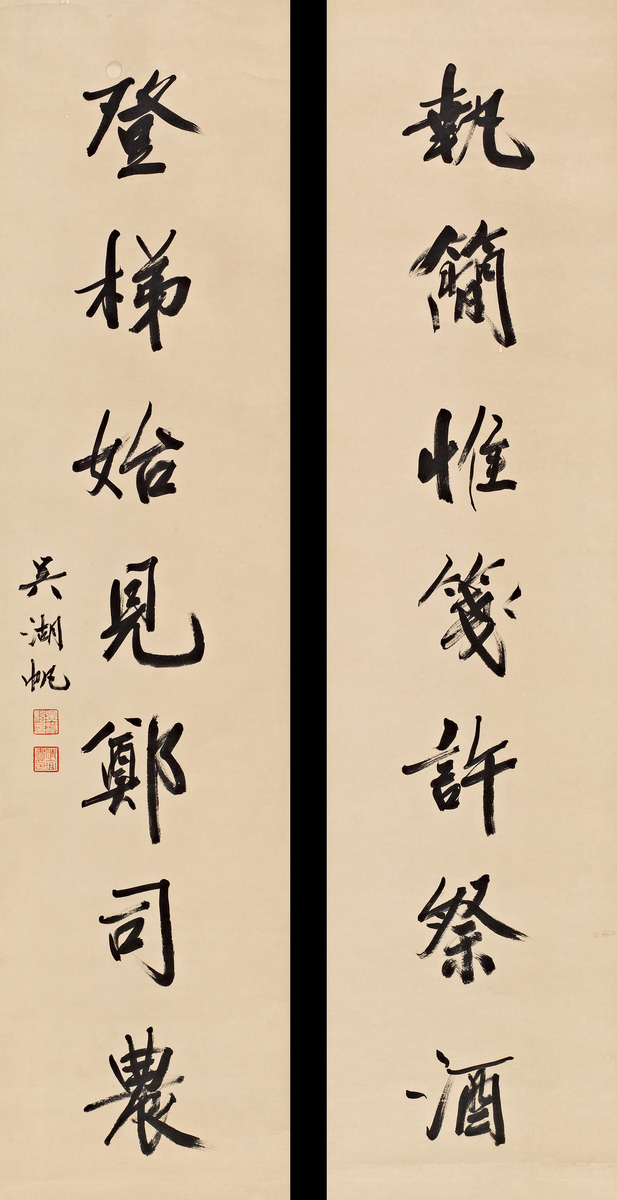 執簡惟箋許祭酒
登梯始見鄭司農
吳湖帆